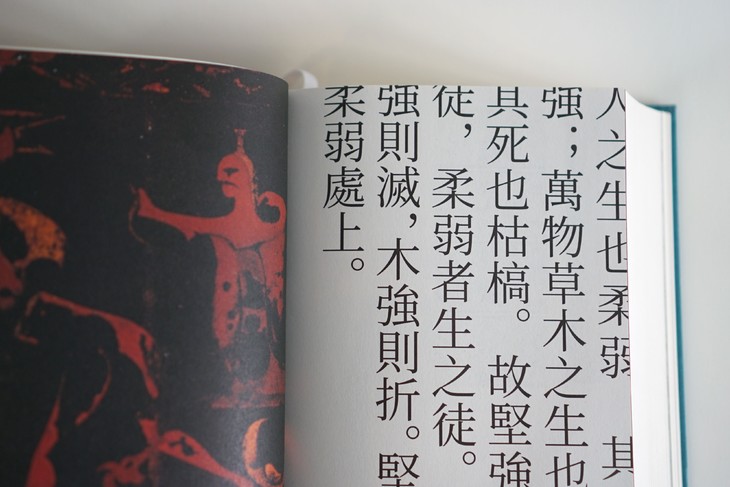 人之生也柔弱 其
強；萬物草木之生也
其死也枯槁。故堅強
徒，柔弱者生之徒。
強則滅，木強則折。堅
柔弱處上。